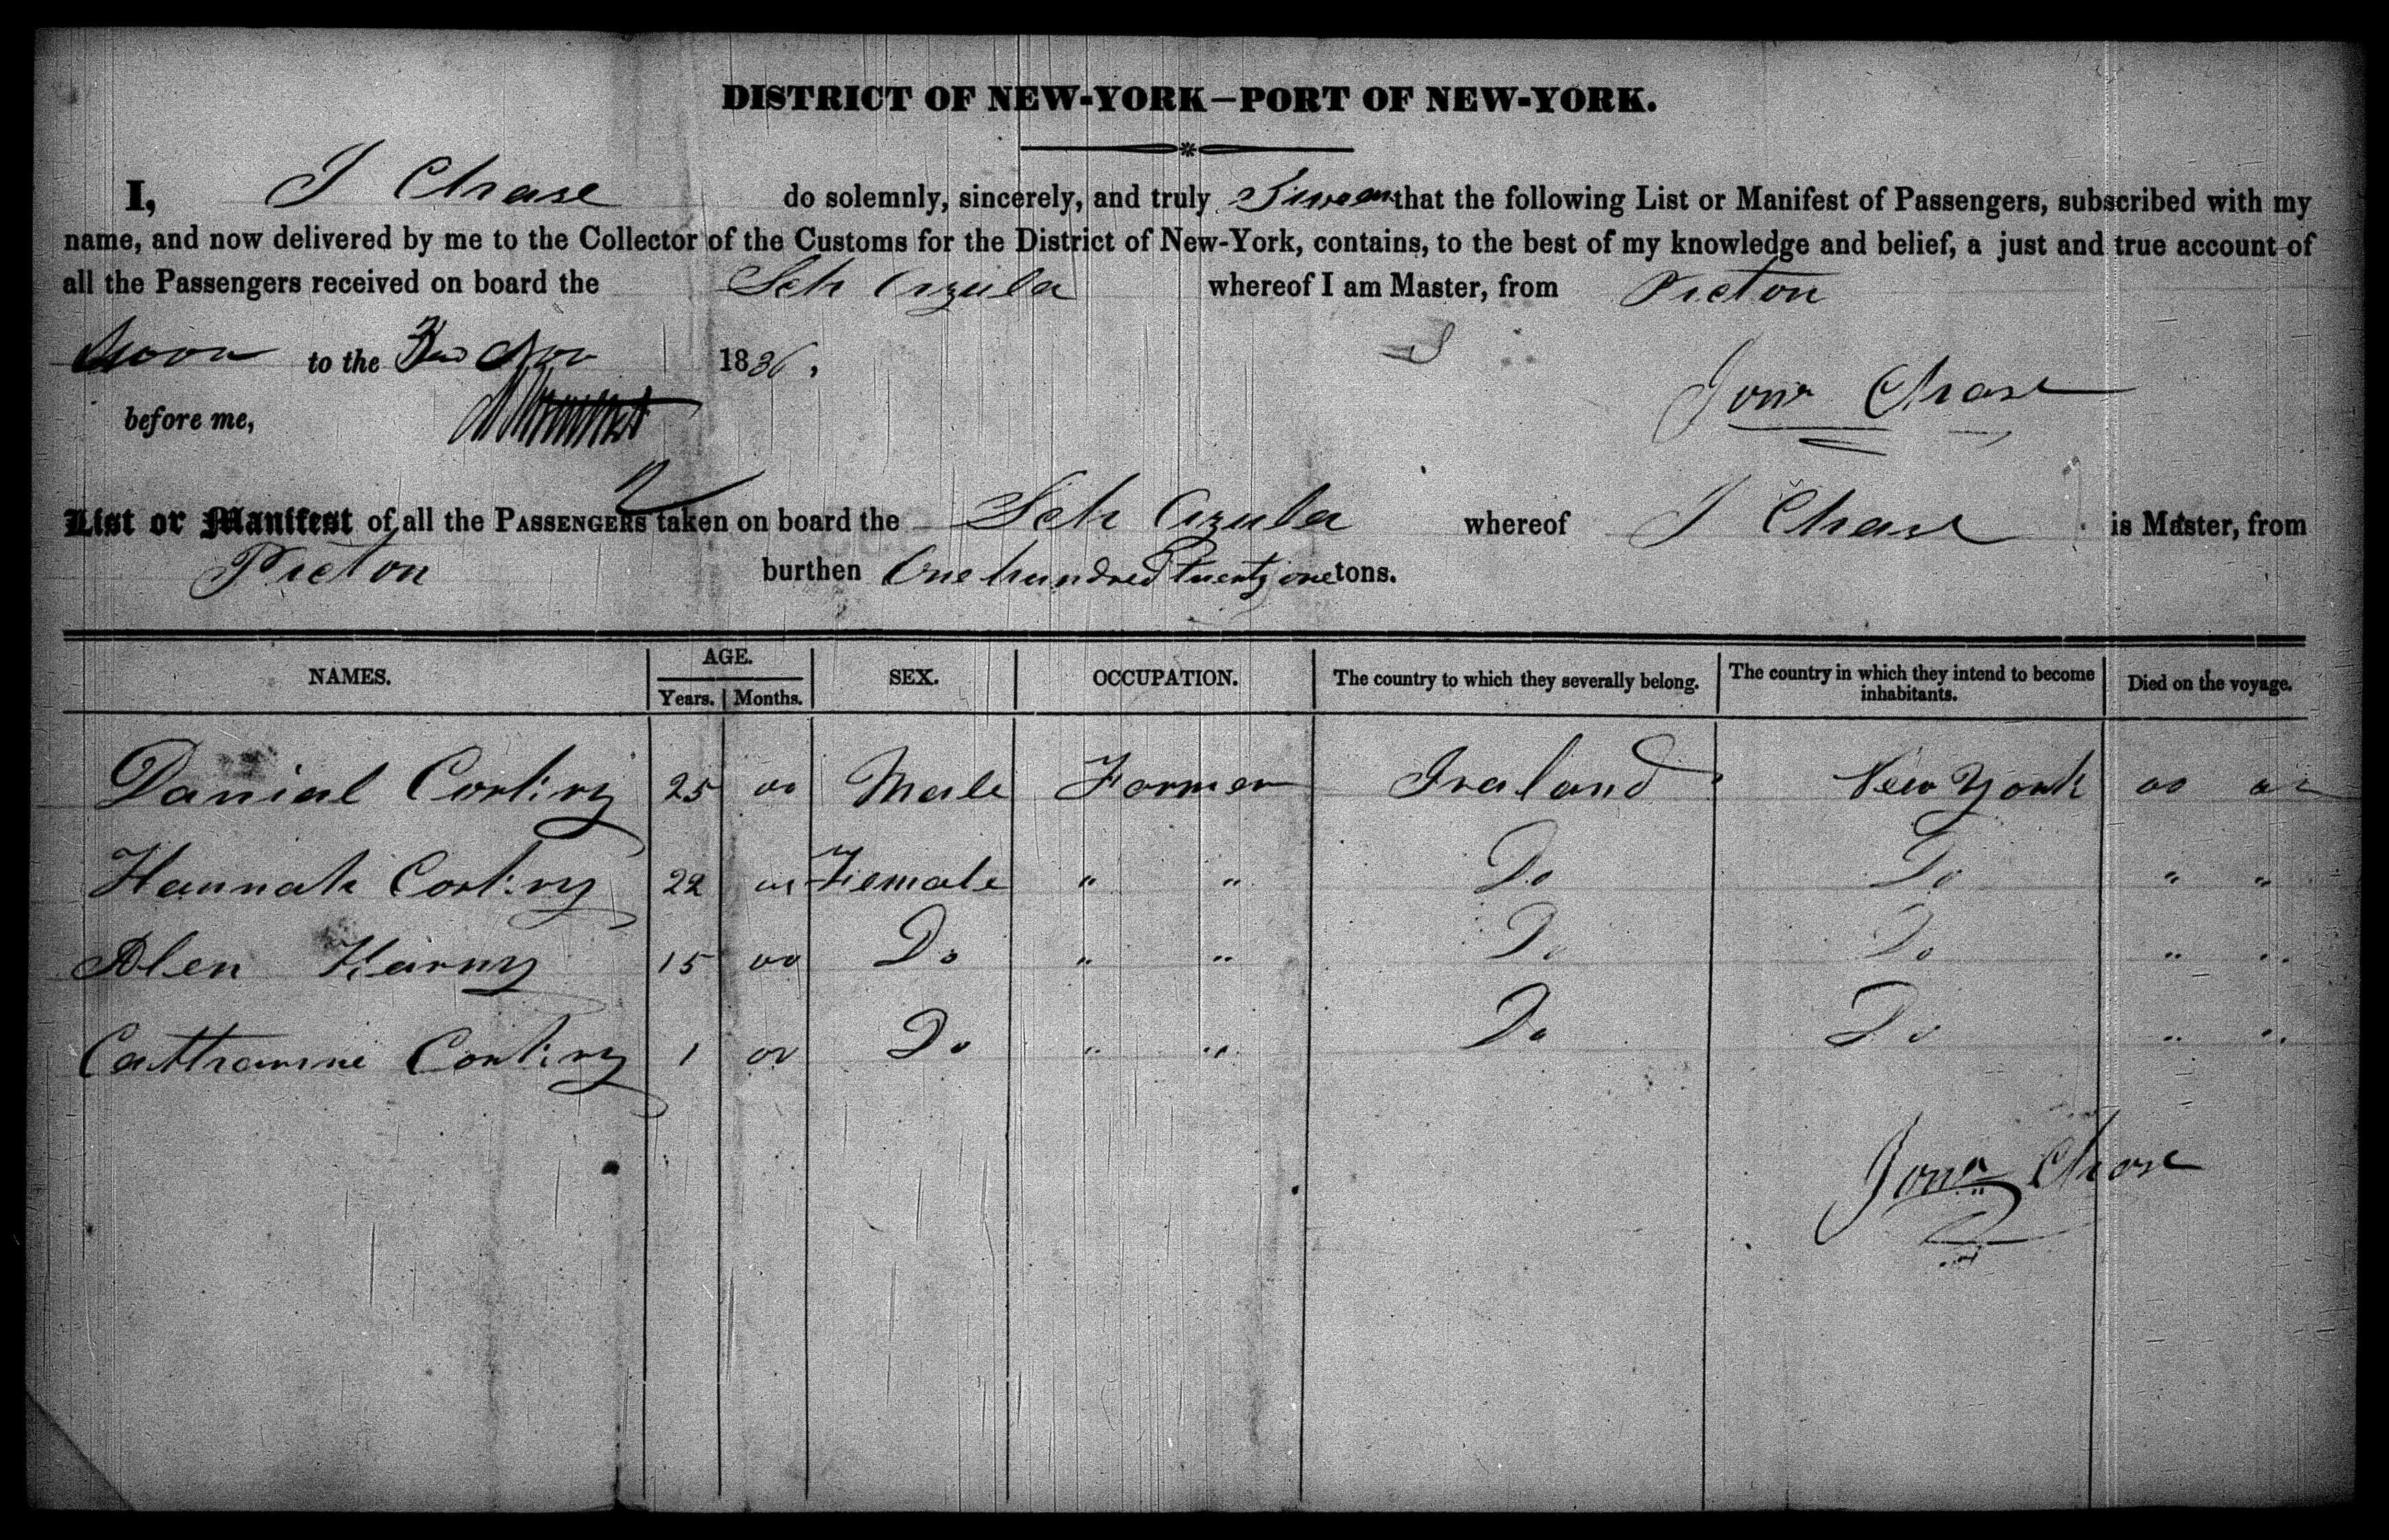 DISTRICT OF NEW-YORK—PORT OF NEW-YORK.
I, J Chase do solemnly, sincerely, and truly Swear that the following List or Manifest of Passengers, subscribed with my
name, and now delivered by me to the Collector of the Customs for the District of New-York, contains, to the best of my knowledge and belief, a just and true account of
all the Passengers received on board the Sch Arzula whereof I am Master, from Picton
Sworn to the 3d Nov 1836.
Jona Chase
before me,
List or Manifest of all the PASSENGERS taken on board the Sch Arzula whereof J Chase is Master, from
Picton burthen One hundred Twenty one tons.
NAMES. AGE. SEX. OCCUPATION. The country to which they severally belong. The country in which they intend to become inhabitants. Died on the voyage.
Years. Months.
Danial Corkiry 25 oo Male Farmer Iraland New York oo oo
Hannah Corkiry 22 oo Female " " Do Do " "
Alen Harny 15 oo Do " " Do Do " "
Cathrarine Corkiry 1 oo Do " " Do Do " "
Jona Chase